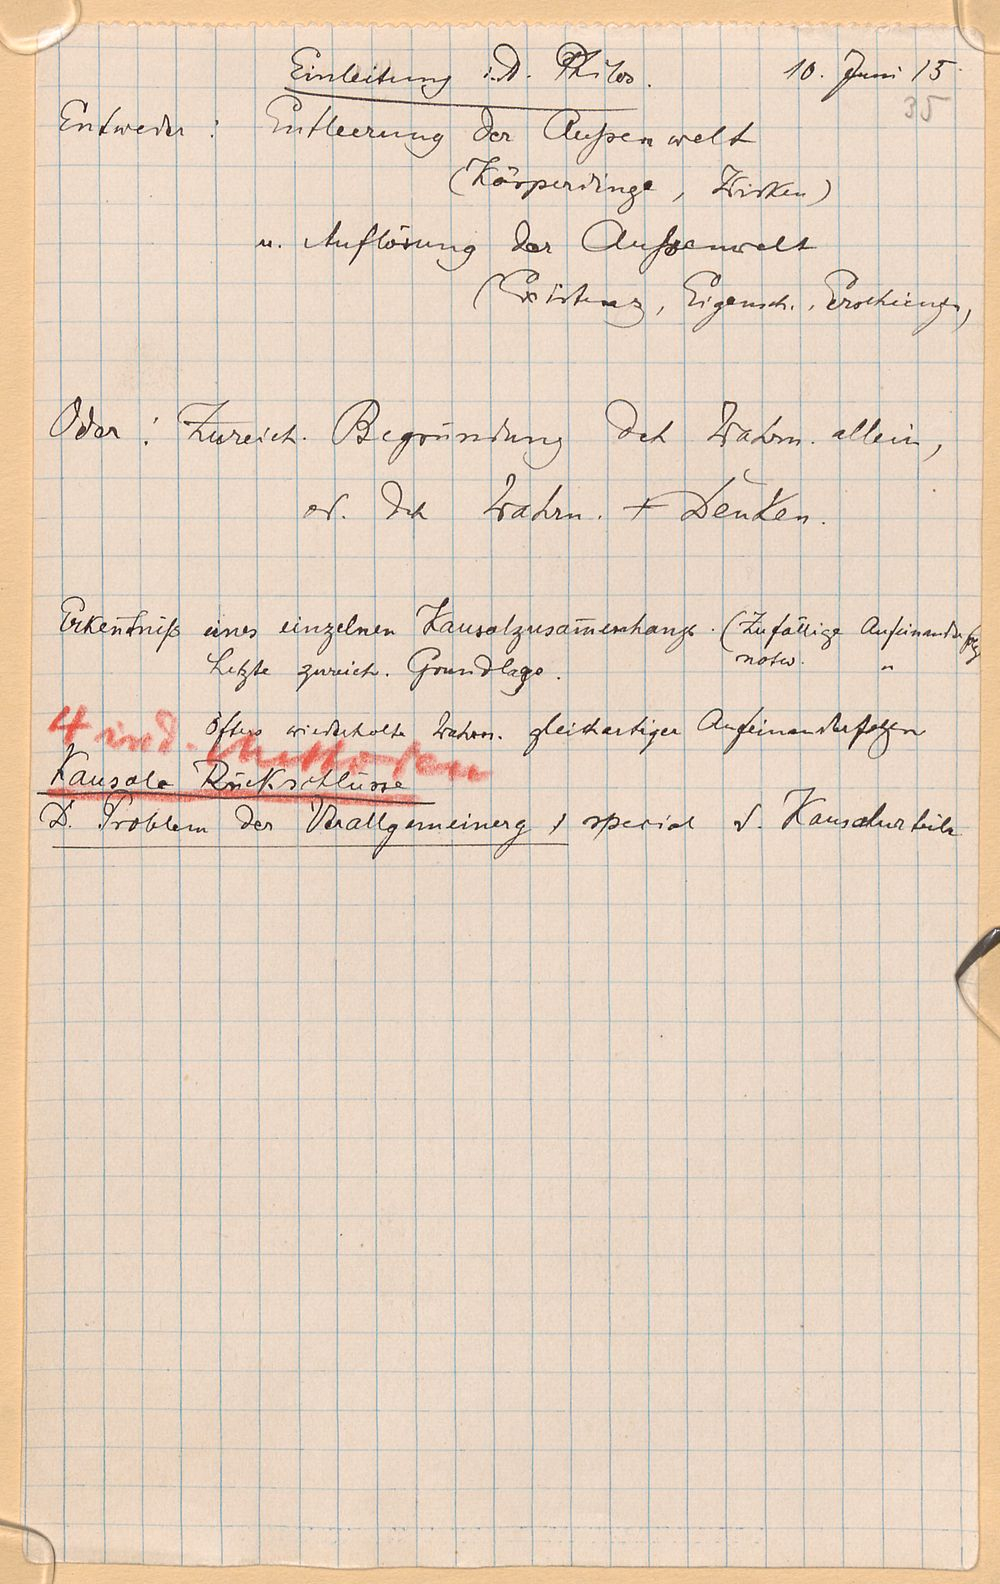 Einleitung i. D. Philos. 10. Juni 15
35
Entweder : Entleerung der Außenwelt
(Körperdinge, Wirken)
u. Auflösung der Außenwelt
(Existenz, Eigensch., Erscheinungn,
Oder : Zureich. Begründung dch Wahrn. allein,
od. dch Wahrn. + Denken.
Erkentniß eines einzelnen Kausalzusamenhangs. (Zufällige Aufeinanderfolg
Letzte zureich. Grundlage. notw. "
öfters wiederholte Wahrn. gleichartiger Aufeinanderfolgen
4 ind. Methoden
Kausale Rückschlüsse
D. Problem der Verallgemeinerg, special d. Kausalurteile